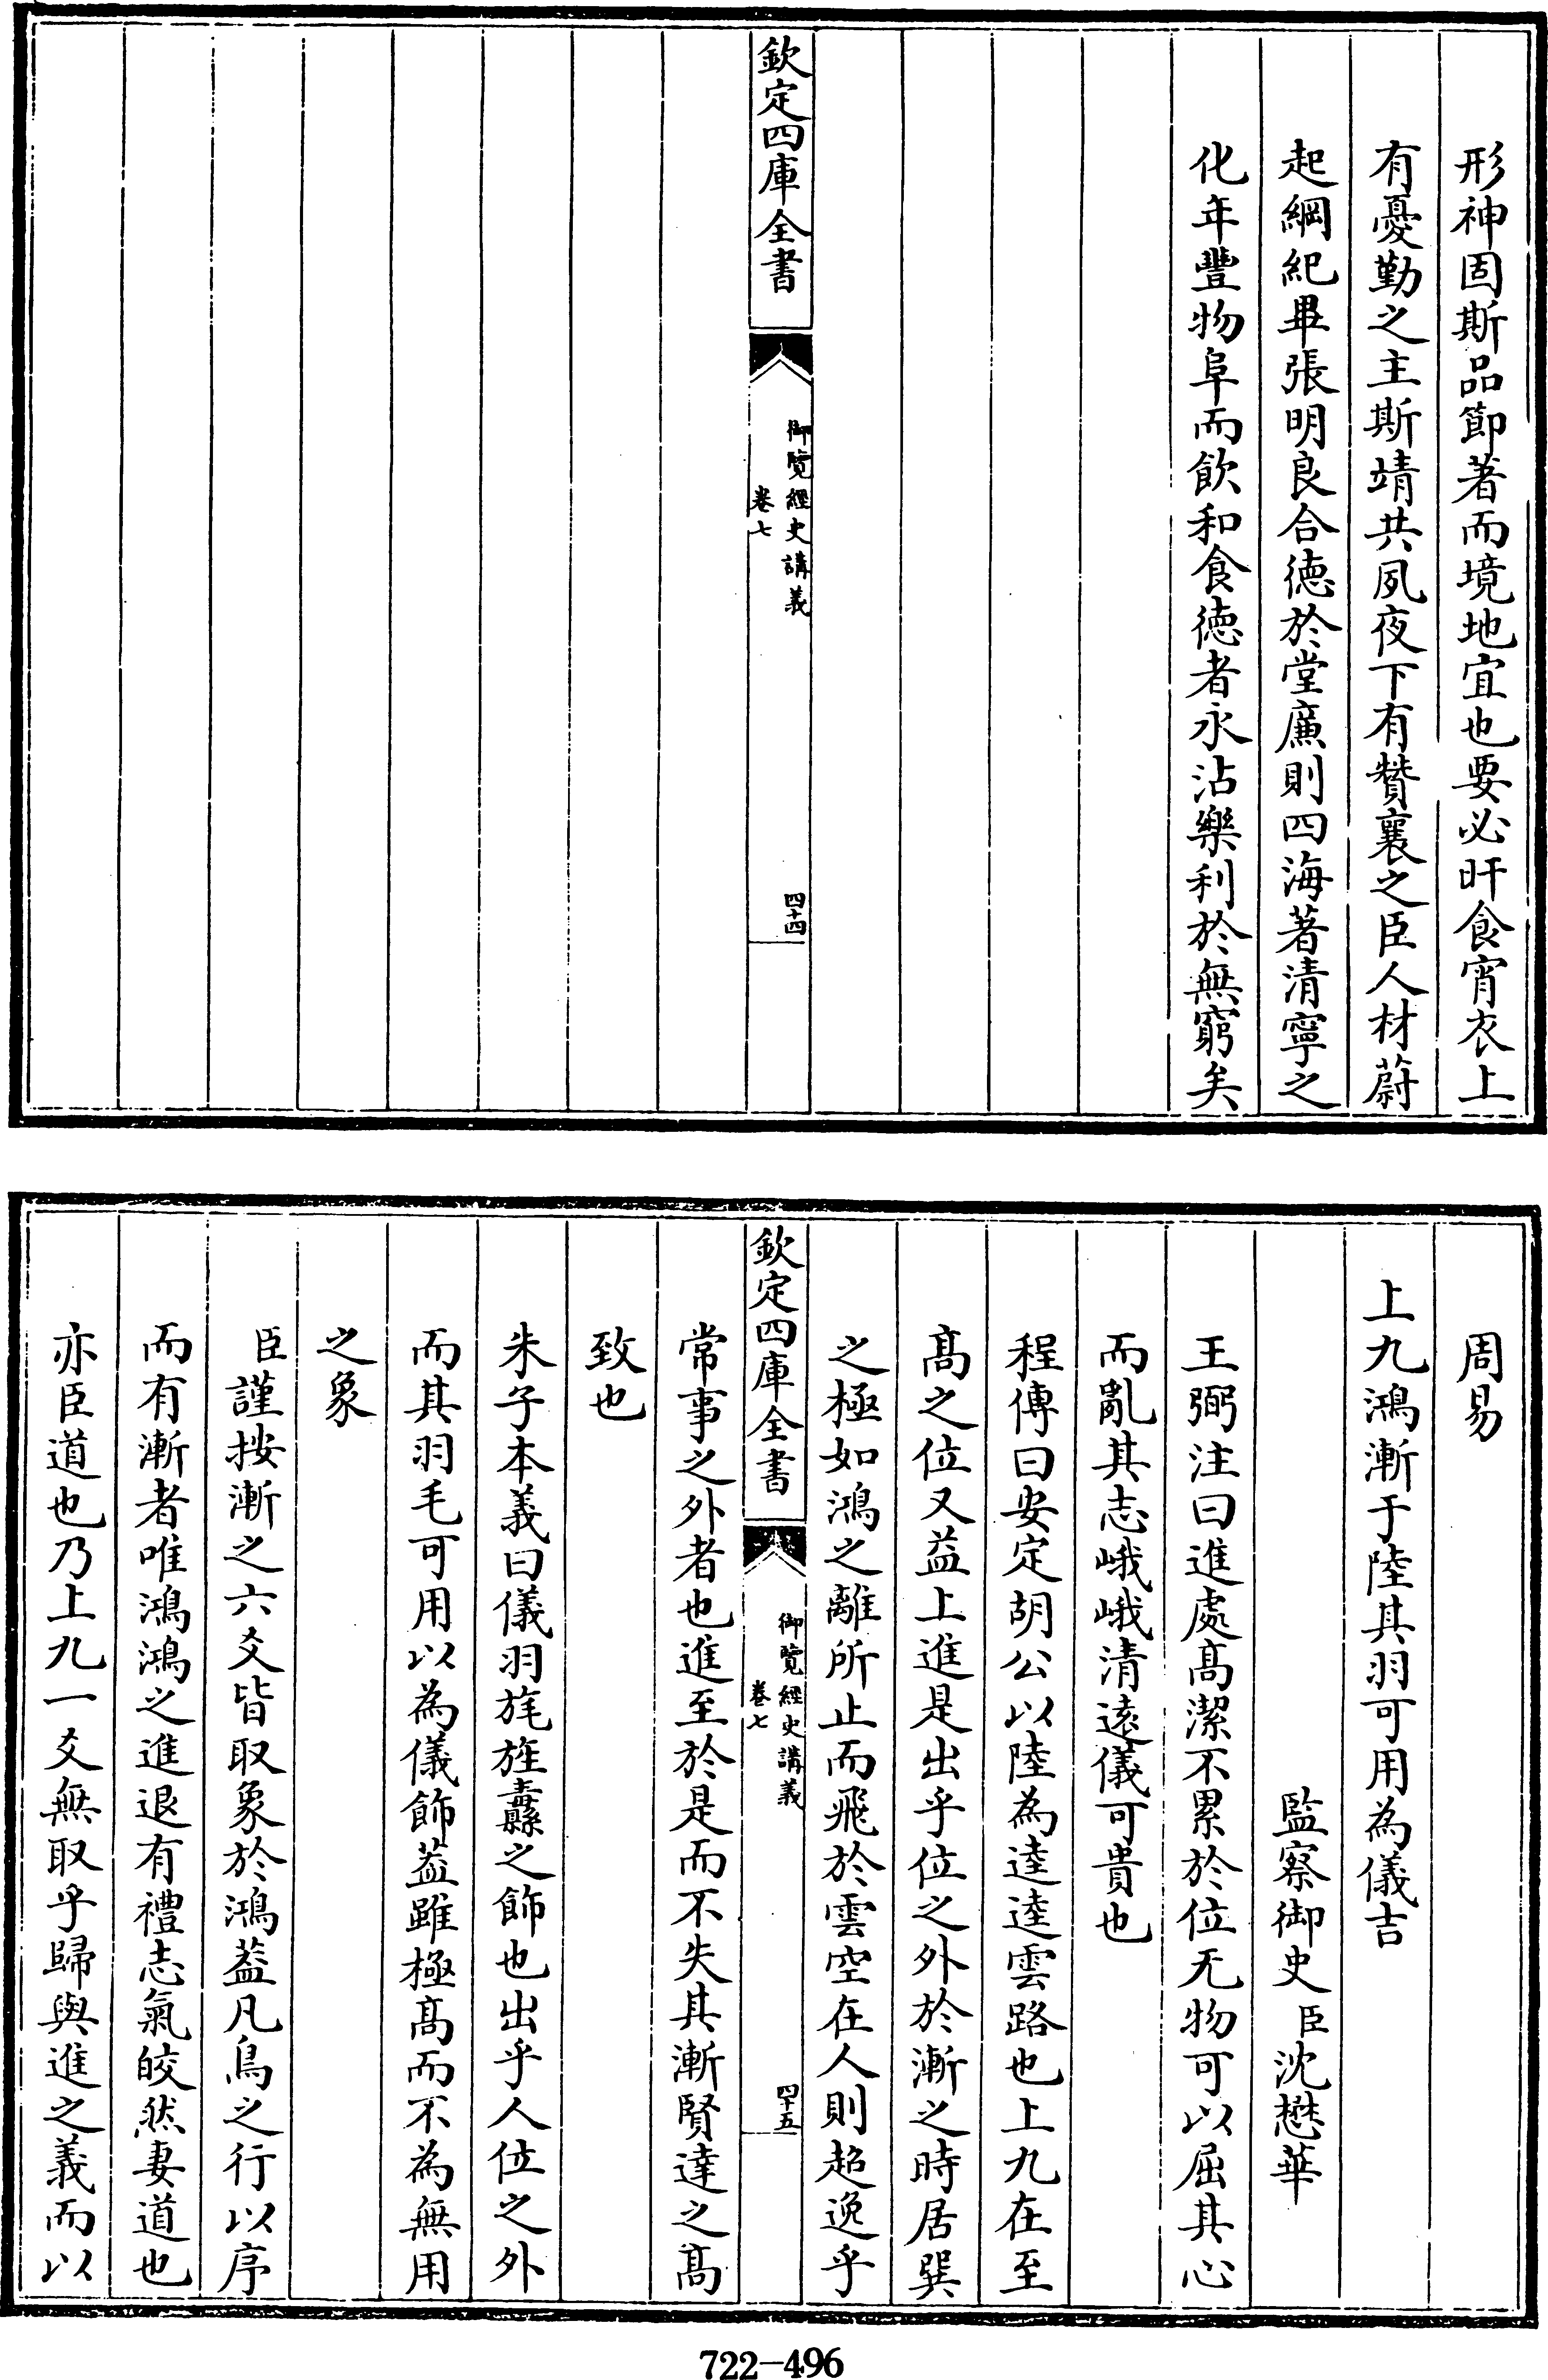 形神固斯品節著而境地宜也要必旰食宵衣上
有憂勤之主斯靖共夙夜下有贊襄之臣人材蔚
起綱紀畢張明良合德於堂廉則四海著清寧之
化年豐物阜而飲和食德者永沾樂利於無窮矣
欽定四庫全書
御覽經史講義
卷七
四十四
周易
上九鴻漸于陸其羽可用為儀吉
監察御史臣沈懋華
王弼注曰進處髙潔不累於位无物可以屈其心
而亂其志峨峨清遠儀可貴也
程傳曰安定胡公以陸為逵逵雲路也上九在至
髙之位又益上進是出乎位之外於漸之時居巽
之極如鴻之離所止而飛於雲空在人則超逸乎
欽定四庫全書
御覽經史講義
卷七
四十五
常事之外者也進至於是而不失其漸賢達之髙
致也
朱子本義曰儀羽旄旌纛之飾也出乎人位之外
而其羽毛可用以為儀飾葢雖極髙而不為無用
之象
臣謹按漸之六爻皆取象於鴻葢凡鳥之行以序
而有漸者唯鴻鴻之進退有禮志氣皎然妻道也
亦臣道也乃上九一爻無取乎歸與進之義而以
722-496